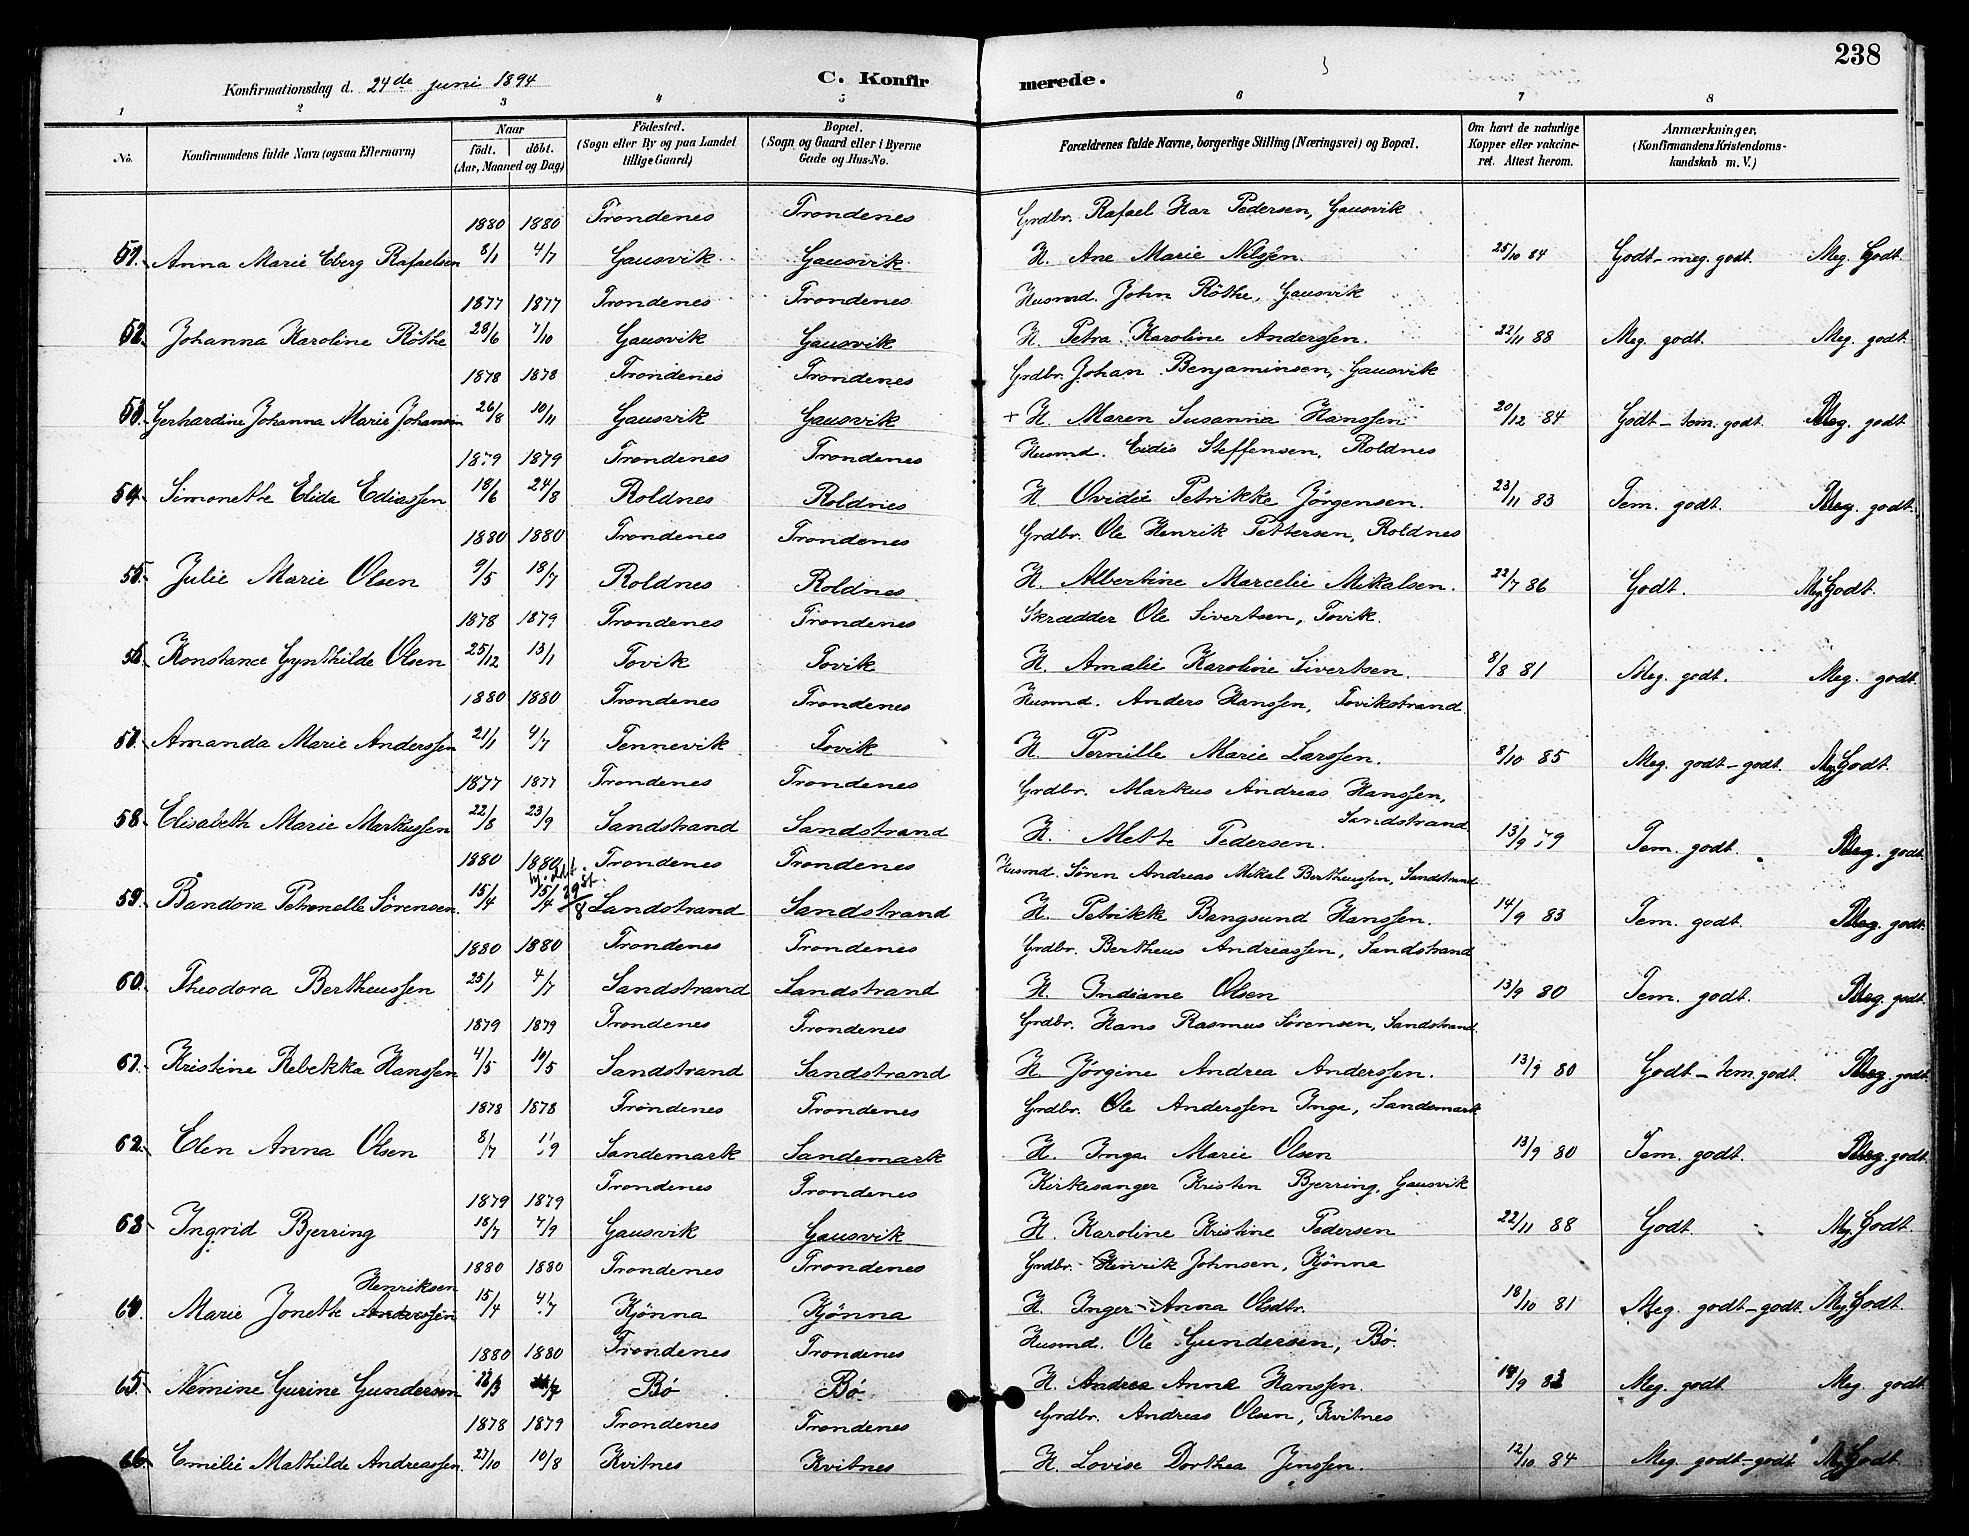 238
Konfirmationsdag d. 24de juni 1894 C. Konfirmerede.
1 2 3 4 5 6 7 8
No. Konfirmandens fulde Navn (ogsaa Efternavn) Naar født. døbt. (Aar, Maaned og Dag) Fødested. (Sogn eller By og paa Landet tillige Gaard) Bopæl. (Sogn og Gaard eller i Byerne Gade og Hus-No. Forældrenes fulde Navne, borgerlige Stilling (Næringsvei) og Bopæl. Om havt de naturlige Kopper eller vakcineret. Attest herom. Anmærkninger, (Konfirmandens Kristendomskundskab m. V.)
1880 1880 Trondenes Trondenes Grdbr. Rafael Kar Pedersen, Gausvik
51. Anna Marie Eberg Rafaelsen 8/1 4/7 Gausvik Gausvik H. Ane Marie Nilsen. 25/10 84 Godt - meg. godt. Meg. Godt.
1877 1877 Trondenes Trondenes Husmd. John Röthe, Gausvik
52. Johanna Karoline Röthe 28/6 7/10 Gausvik Gausvik H. Petra Karoline Anderssen. 22/11 88 Meg. godt. Meg. godt.
1878 1878 Trondenes Trondenes Grdbr. Johan Benjaminsen, Gausvik
53. Gerhardine Johanna Marie Johansen 26/8 10/11 Gausvik Gausvik + H. Maren Susanna Hanssen 20/12 84 Godt - tem. godt. Meg. godt
1879 1879 Trondenes Trondenes Husmd. Eidis Steffensen, Roldnes
54. Simonette Elida Ediassen 18/6 24/8 Roldnes Roldnes H. Ovidie Petrikke Jörgensen. 23/11 83 Tem. godt. Meg. godt.
1880 1880 Trondenes Trondenes Grdbr. Ole Henrik Pettersen, Roldnes
55. Julie Marie Olsen 9/5 18/7 Roldnes Roldnes H. Albertine Marcelie Mikalsen. 22/7 86 Godt. Meg Godt.
1878 1879 Trondenes Trondenes Skrædder Ole Sivertsen, Tovik.
56. Konstance Gynthilde Olsen 25/12 13/1 Tovik Tovik H. Amalie Karoline Sivertsen. 8/8 81 Meg. godt. Meg. godt.
1880 1880 Trondenes Trondenes Husmd. Anders Hanssen, Tovikstrand.
57. Amanda Marie Anderssen 21/1 4/7 Tennevik Tovik H. Pernille Marie Larssen. 8/10 85 Meg. godt - godt. Meg Godt.
1877 1877 Trondenes Trondenes Grdbr. Markus Andreas Hanssen,
Sandstrand
58. Elisabeth Marie Markussen 22/8 23/9 Sandstrand Sandstrand H. Mette Pedersen. 13/9 79 Tem. godt. Meg. godt.
1880 1880 Trondenes Trondenes Husmd. Sören Andreas Mikel Bertheussen, Sandstrand
hj. dbt. st.
59. Bandora Petronelle Sörensen. 15/4 15/4 29/8 Sandstrand Sandstrand H. Petrikk Bangsund Hanssen. 14/9 83 Tem. godt. Meg. godt.
1880 1880 Trondenes Trondenes Grdbr. Bertheus Andreassen, Sandstrand
60. Theodora Bertheussen 25/1 4/7 Sandstrand Sandstrand H. Indiane Olsen 13/9 80 Tem. godt. Meg. godt.
1879 1879 Trondenes Trondenes Grdbr. Hans Rasmus Sörensen, Sandstrand.
61. Kristine Rebekka Hanssen 4/5 10/5 Sandstrand Sandstrand H. Jörgine Andrea Anderssen. 13/9 80 Godt - tem. godt. Meg. godt.
1878 1878 Trondenes Trondenes Grdbr. Ole Anderssen Inga, Sandemark
62. Elen Anna Olsen 8/7 1/9 Sandemark Sandemark H. Inga Marie Olsen 13/9 80 Tem. godt. Meg. godt.
1879 1879 Trondenes Trondenes Kirkesanger Kristen Bjerring, Gausvik
63. Ingrid Bjerring 18/7 7/9 Gausvik Gausvik H. Karoline Kristine Pedersen 22/11 88 Godt. Meg. Godt.
1880 1880 Trondenes Trondenes Grdbr. Henrik Johnsen, Kjönna
Henriksen
64. Marie Jonette Anderssen 15/4 4/7 Kjönna Kjönna H. Inger Anna Olsdtr. 18/10 81 Meg. godt - godt. Meg Godt.
1880 1880 Trondenes Trondenes Husmd. Ole Gundersen, Bö.
65. Nemine Gurine Gundersen Bö Bö. H. Andrea Anna Hanssen. Meg. godt. Meg. godt.
1878 1879 Trondenes Trondenes Grdbr. Andreas Olsen, Kvitnes
66. Emilie Mathilde Andreassen. 27/10 10/8 Kvitnes Kvitnes H. Lovise Dorthea Jenssen. 12/10 84 Meg. godt - godt. Meg Godt.